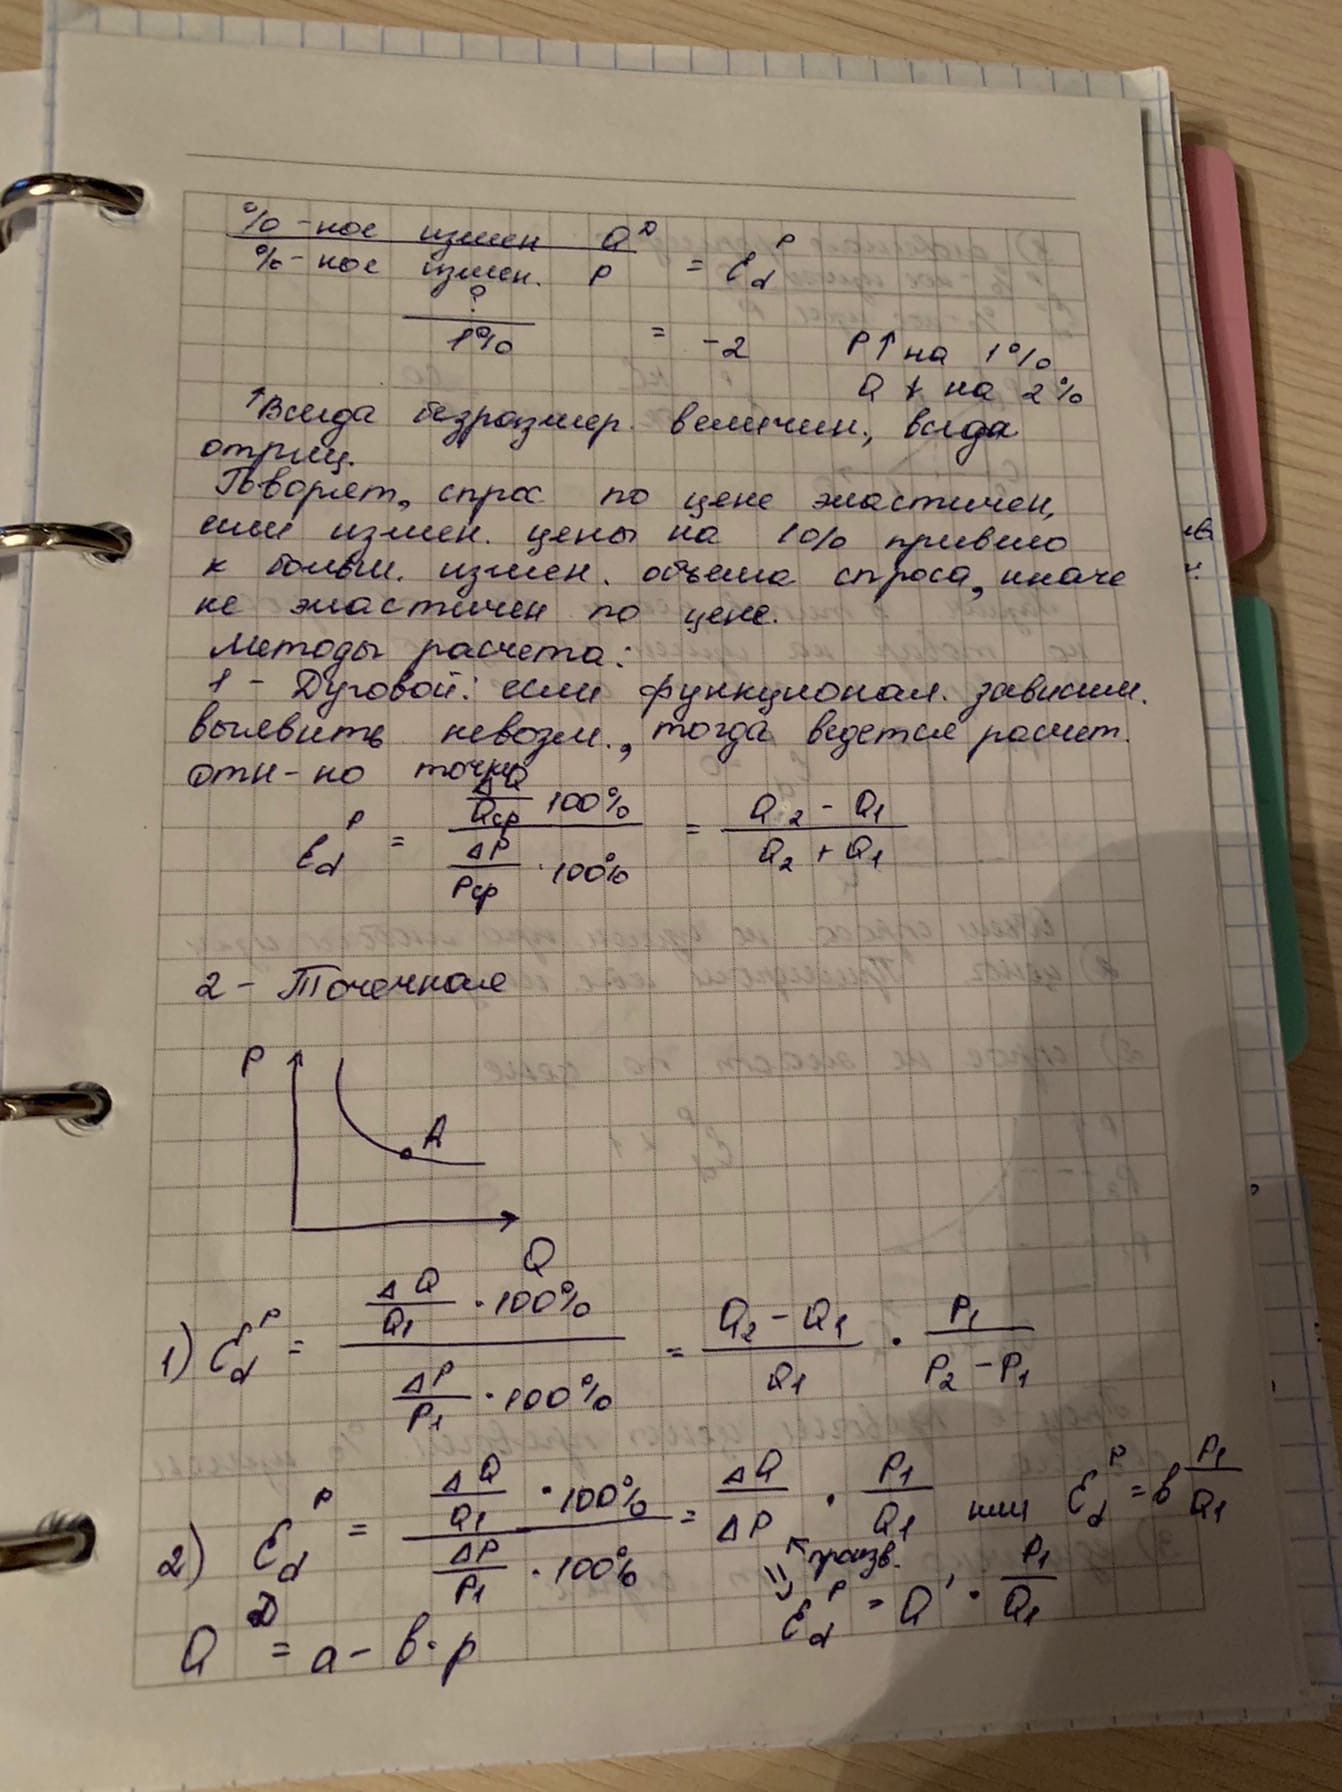 %-ное измен Q^D
%-ное измен. P = E_d^P
?
1% = -2 P↑ на 1%
Q↓ на 2%
↑Всегда безразмер. величин., всегда
отриц.
Говорят, спрос по цене эластичен,
если измен. цены на 1% привело
к больш. измен. объема спроса, иначе
не эластичен по цене.
Методы расчета:
1 - Дуговой: если функционал. зависим.
выявить невозм., тогда ведется расчет.
отн-но точки
E_d^P = (ΔQ/Qср · 100%) / (ΔP/Pср · 100%) = (Q2 - Q1) / (Q2 + Q1)
2 - Точечная
P
A
Q
1) E_d^P = (ΔQ/Q1 · 100%) / (ΔP/P1 · 100%) = (Q2 - Q1)/Q1 · P1/(P2 - P1)
2) E_d^P = (ΔQ/Q1 · 100%) / (ΔP/P1 · 100%) = ΔQ/ΔP · P1/Q1 или E_d^P = в P1/Q1
произв.
E_d^P = Q' · P1/Q1
Q^D = a - в · p